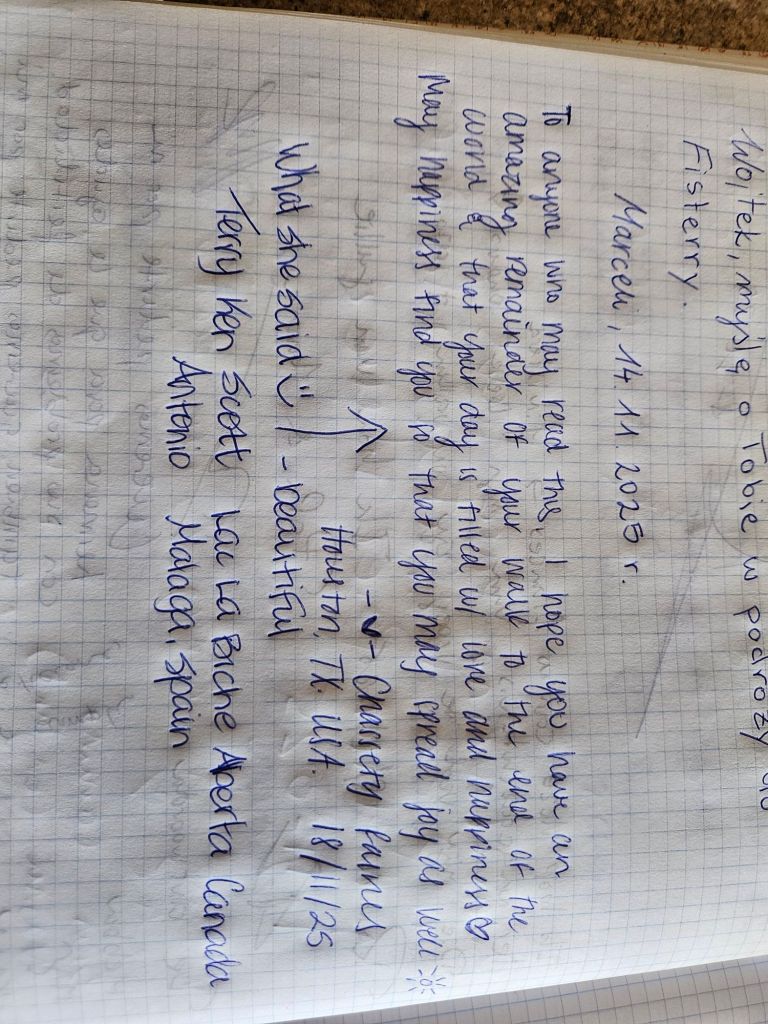 Wojtek, myślę o Tobie w podróży do
Fisterry.
Marceli, 14.11.2025 r.
To anyone who may read this, I hope you have an
amazing remainder of your walk to the end of the
world & that your day is filled w/ love and happiness ♡
May happiness find you so that you may spread joy as well ☼
- ♥ - Chassety
Houston, TX. USA. 18/11/25
What she said :) ↑ - beautiful
Terry Ken Scott Lac La Biche Alberta Canada
Antonio Malaga, Spain